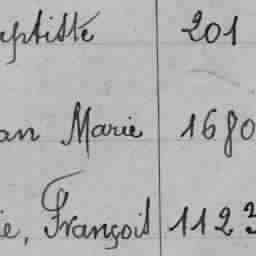 aptiste 201
an Marie 1680
ie, François 1123